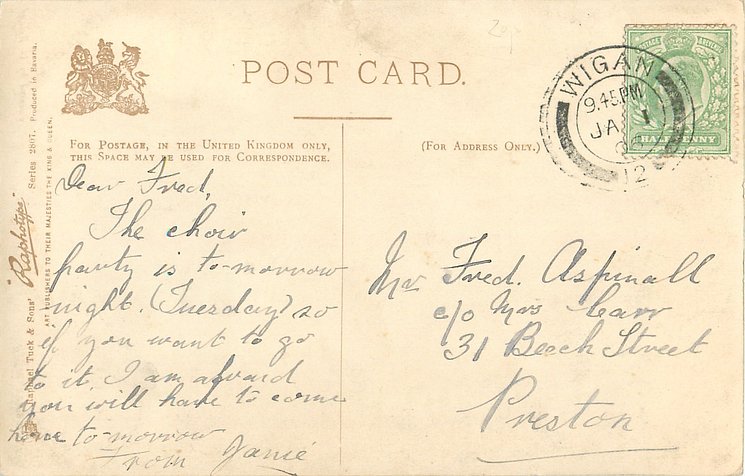 POST CARD.
FOR POSTAGE, IN THE UNITED KINGDOM ONLY,
THIS SPACE MAY BE USED FOR CORRESPONDENCE.
(FOR ADDRESS ONLY.)
WIGAN
9.45PM
JA 1
12
POSTAGE REVENUE
HALFPENNY
Dear Fred,
The choir
party is to-morrow
night. (Tuesday) so
if you want to go
to it, I am afraid
you will have to come
home to-morrow
From Janie
Mr Fred. Aspinall
c/o Mrs Carr
31 Beech Street
Preston
Raphael Tuck & Sons' "Raphotype" Series 2807. Produced in Bavaria.
ART PUBLISHERS TO THEIR MAJESTIES THE KING & QUEEN.